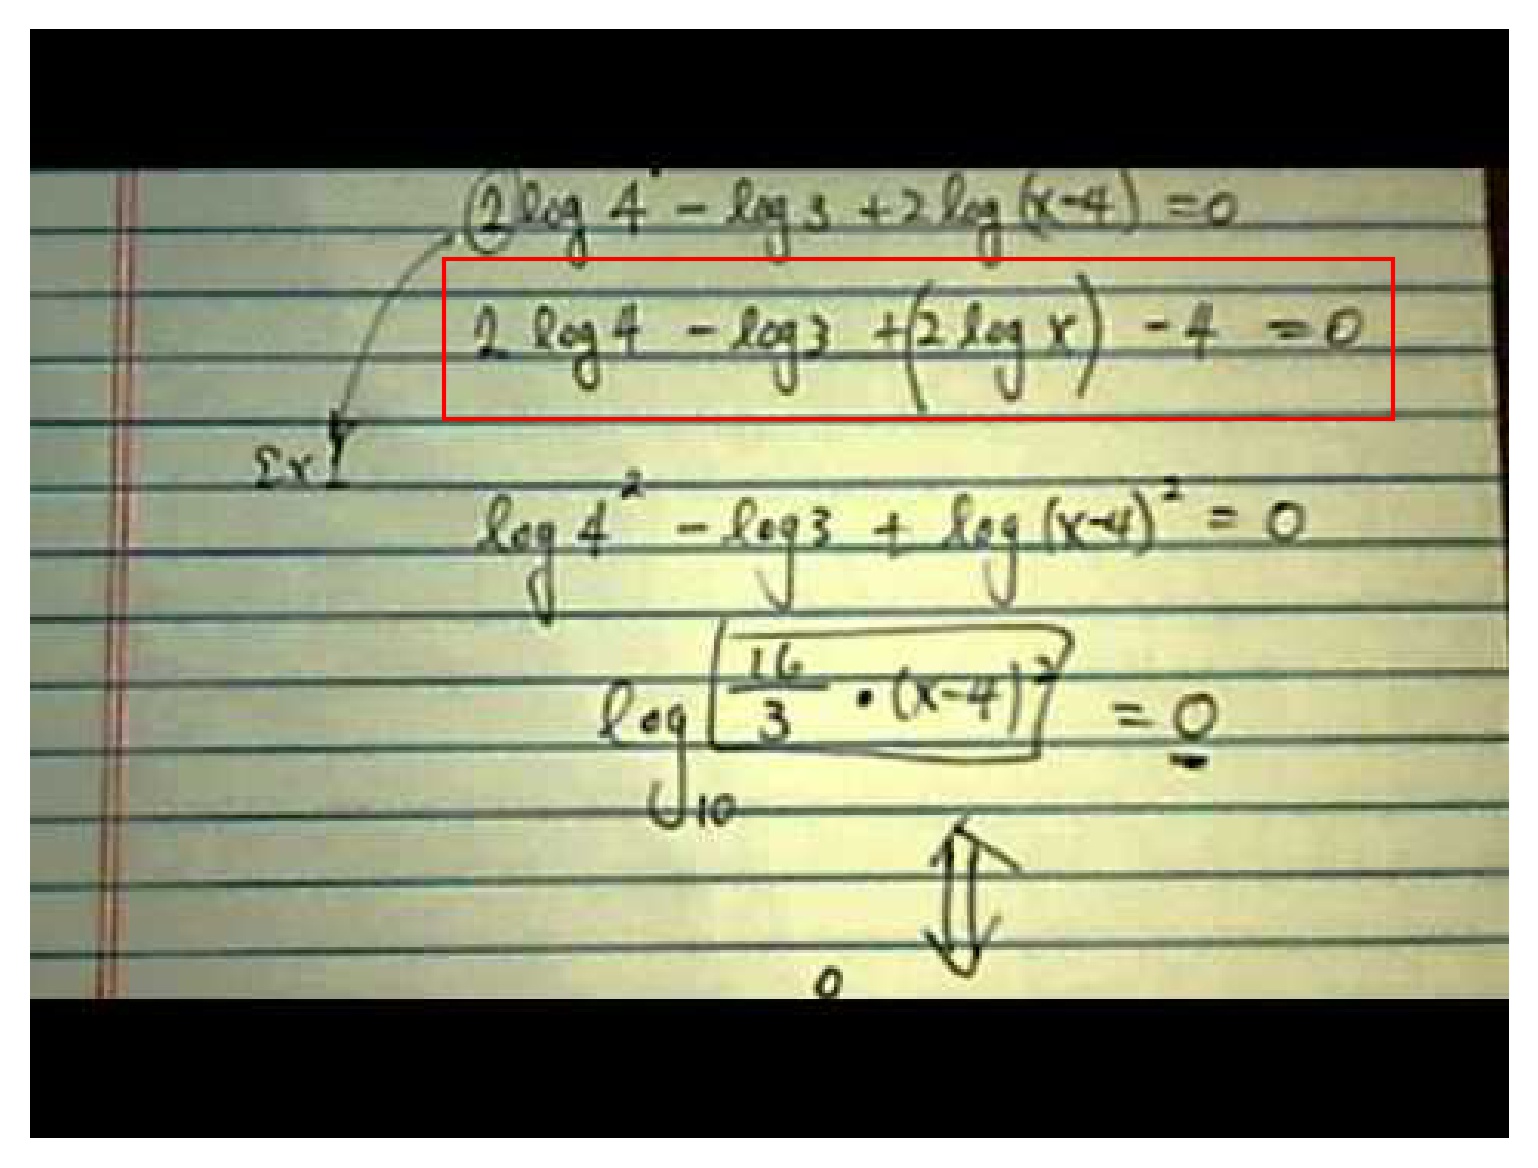 2 log 4 - log 3 + 2 log (x-4) = 0
2 log 4 - log 3 + (2 log x) - 4 = 0
Ex 1
log 4² - log 3 + log (x-4)² = 0
log₁₀ [16/3 • (x-4)²] = 0
0